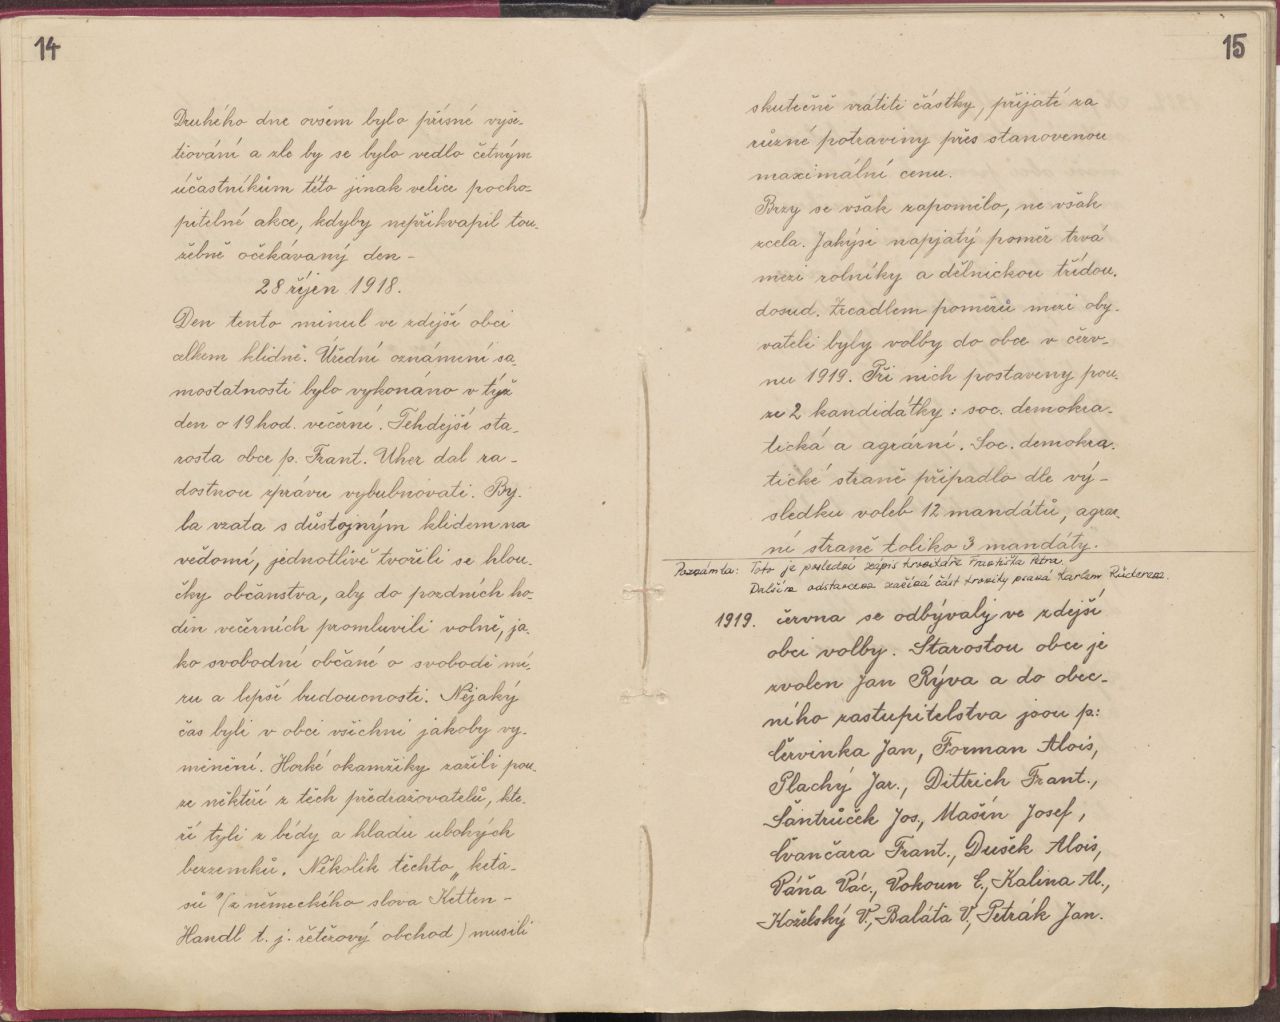 14
Druhého dne ovšem bylo přísné vyše-
třování a zle by se bylo vedlo četným
účastníkům této jinak velice pocho-
pitelné akce, kdyby nepřikvapil tou-
žebně očekávaný den -
28 říjen 1918.
Den tento minul ve zdejší obci
celkem klidně. Úřední oznámení sa-
mostatnosti bylo vykonáno v týž
den o 19 hod. večerní. Tehdejší sta-
rosta obce p. Frant. Uher dal ra-
dostnou zprávu vybubnovati. By-
la vzata s důstojným klidem na
vědomí, jednotlivě tvořili se hlou-
čky občanstva, aby do pozdních ho-
din večerních promluvili volně, ja-
ko svobodní občané o svobodě mí-
ru a lepší budoucnosti. Nějaký
čas byli v obci všichni jakoby vy-
měnění. Horké okamžiky zažili pou-
ze někteří z těch předražovatelů, kte-
ří tyli z bídy a hladu ubohých
bezzemků. Několik těchto „ketă-
sů" (z německého slova Ketten-
Handl t. j. řetězový obchod) musili
15
skutečně vrátiti částky, přijaté za
různé potraviny přes stanovenou
maximální cenu.
Brzy se však zapomělo, ne však
zcela. Jakýsi napjatý poměr trvá
mezi rolníky a dělnickou třídou.
dosud. Zrcadlem poměrů mezi oby-
vateli byly volby do obce v červ-
nu 1919. Při nich postaveny pou-
ze 2 kandidátky: soc. demokra-
tická a agrární. Soc. demokra-
tické straně připadlo dle vý-
sledku voleb 12 mandátů, agrar-
ní straně toliko 3 mandáty.
Poznámka: Toto je poslední zápis kronikáře Františka Petra.
Dalším odstavcem začíná část kroniky psaná Karlem Růderem.
1919. června se odbývaly ve zdejší
obci volby. Starostou obce je
zvolen Jan Rýva a do obec-
ního zastupitelstva jsou p:
Červinka Jan, Forman Alois,
Plachý Jar., Dittrich Frant.,
Šantrůček Jos., Mašín Josef,
Čvančara Frant., Dušek Alois,
Páňa Vác., Vokoun Č., Kalina Al.,
Koželský V., Baláta V., Petrák Jan.